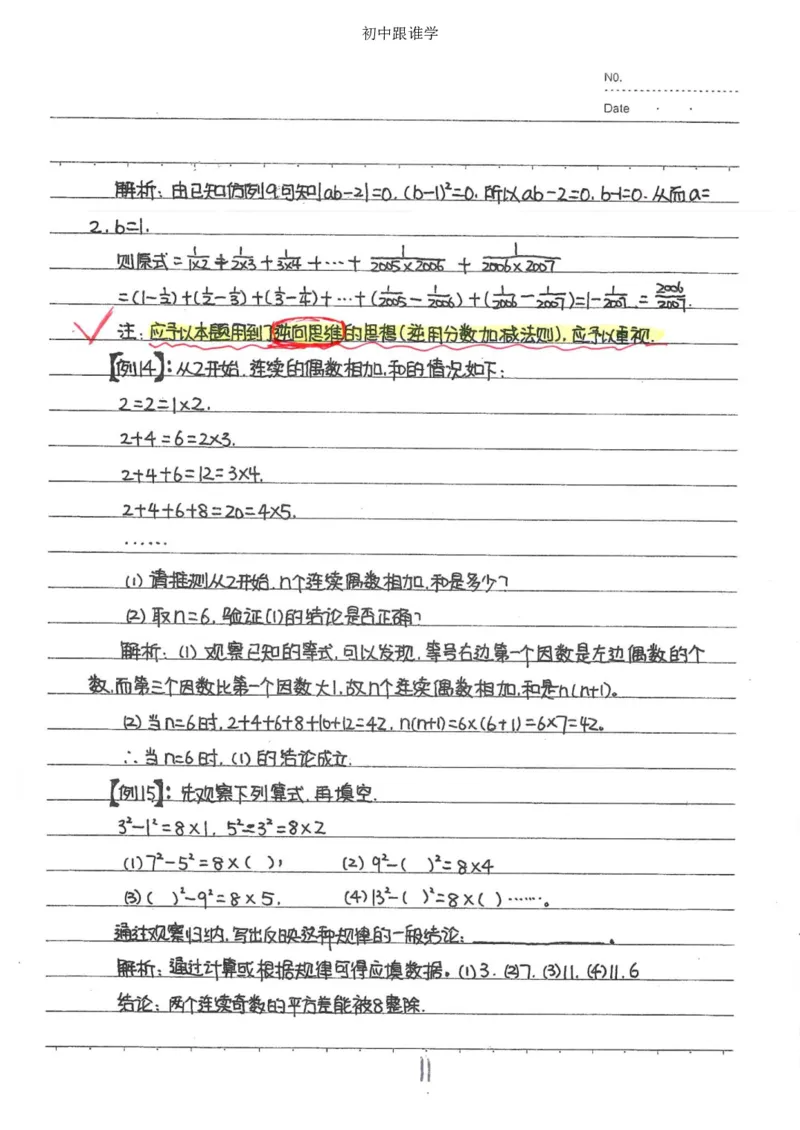 初中跟谁学
NO.
Date
解析：由已知仿例9可知|ab-2|=0，(b-1)²=0，所以ab-2=0，b-1=0．从而a=
2，b=1．
则原式=1/1×2+1/2×3+1/3×4+…+1/2005×2006+1/2006×2007
=(1-1/2)+(1/2-1/3)+(1/3-1/4)+…+(1/2005-1/2006)+(1/2006-1/2007)=1-1/2007=2006/2007．
注：应予以本题用到了逆向思维的思想(逆用分数加减法则)，应予以重视．
【例14】：从2开始，连续的偶数相加，和的情况如下：
2=2=1×2．
2+4=6=2×3．
2+4+6=12=3×4．
2+4+6+8=20=4×5．
……
(1) 请推测从2开始，n个连续偶数相加，和是多少？
(2) 取n=6，验证(1)的结论是否正确？
解析：(1) 观察已知的等式，可以发现，等号右边第一个因数是左边偶数的个
数，而第三个因数比第一个因数大1，故n个连续偶数相加，和是n(n+1)。
(2) 当n=6时，2+4+6+8+10+12=42，n(n+1)=6×(6+1)=6×7=42。
∴当n=6时，(1)的结论成立．
【例15】：先观察下列算式，再填空．
3²-1²=8×1，5²-3²=8×2
(1) 7²-5²=8×( )； (2) 9²-( )²=8×4
(3) ( )²-9²=8×5． (4) 13²-( )²=8×( )……。
通过观察归纳，写出反映这种规律的一般结论：____________。
解析：通过计算或根据规律可得应填数据。(1)3．(2)7．(3)11．(4)11，6
结论：两个连续奇数的平方差能被8整除．
11